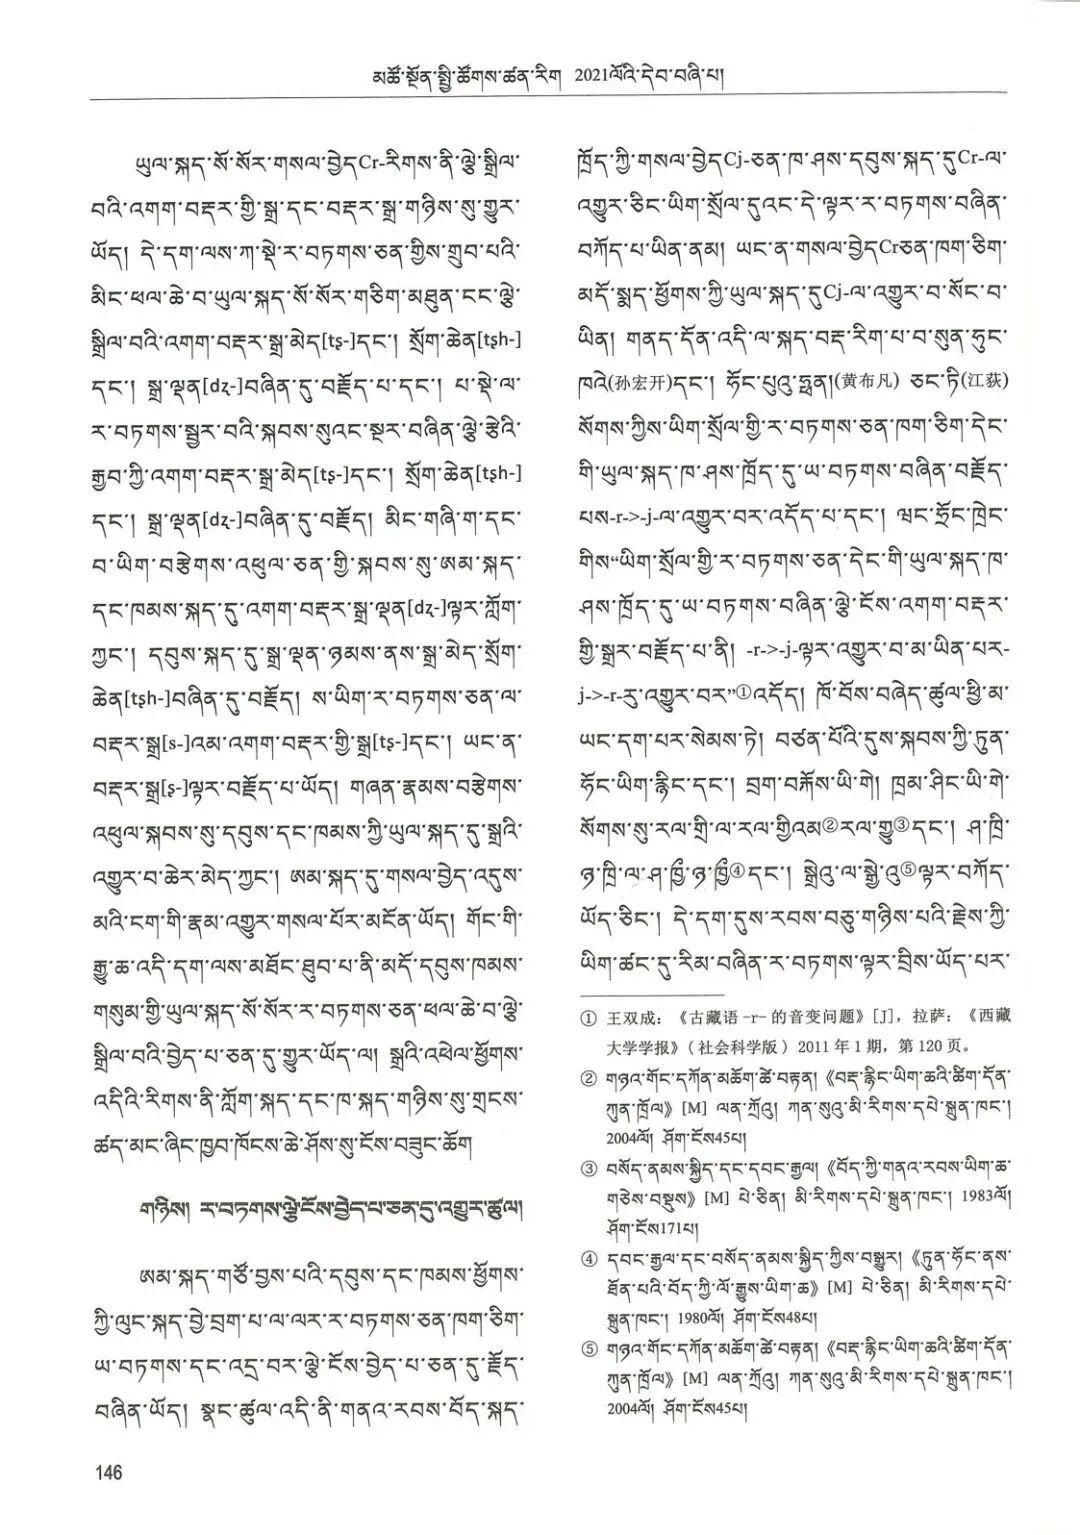 མཚོ་སྔོན་སྤྱི་ཚོགས་ཚན་རིག 2021ལོའི་དེབ་བཞི་པ།
ཡུལ་སྐད་སོ་སོར་གསལ་བྱེད་Cr-རིགས་ནི་ལྕེ་སྒྲིལ་
བའི་འགག་བརྡར་གྱི་སྒྲ་དང་བརྡར་སྒྲ་གཉིས་སུ་གྱུར་
ཡོད། དེ་དག་ལས་ཀ་སྡེ་ར་བཏགས་ཅན་གྱིས་གྲུབ་པའི་
མིང་ཕལ་ཆེ་བ་ཡུལ་སྐད་སོ་སོར་གཅིག་མཐུན་ངང་ལྕེ་
སྒྲིལ་བའི་འགག་བརྡར་སྒྲ་མེད[tʂ-]དང་། སྲོག་ཆེན[tʂh-]
དང་། སྒྲ་ལྡན[dʐ-]བཞིན་དུ་བརྗོད་པ་དང་། པ་སྡེ་ལ་
ར་བཏགས་སྦྱར་བའི་སྐབས་སུའང་སྔར་བཞིན་ལྕེ་རྩེའི་
རྒྱབ་ཀྱི་འགག་བརྡར་སྒྲ་མེད[tʂ-]དང་། སྲོག་ཆེན[tʂh-]
དང་། སྒྲ་ལྡན[dʐ-]བཞིན་དུ་བརྗོད། མིང་གཞི་ག་དང་
བ་ཡིག་བརྩེགས་འཕུལ་ཅན་གྱི་སྐབས་སུ་ཨམ་སྐད་
དང་ཁམས་སྐད་དུ་འགག་བརྡར་སྒྲ་ལྡན[dʐ-]ལྟར་ཀློག་
ཀྱང་། དབུས་སྐད་དུ་སྒྲ་ལྡན་ཉམས་ནས་སྒྲ་མེད་སྲོག་
ཆེན[tʂh-]བཞིན་དུ་བརྗོད། ས་ཡིག་ར་བཏགས་ཅན་ལ་
བརྡར་སྒྲ[s-]འམ་འགག་བརྡར་གྱི་སྒྲ[tʂ-]དང་། ཡང་ན་
བརྡར་སྒྲ[ʂ-]ལྟར་བརྗོད་པ་ཡོད། གཞན་རྣམས་བརྩེགས་
འཕུལ་སྐབས་སུ་དབུས་དང་ཁམས་ཀྱི་ཡུལ་སྐད་དུ་སྒྲའི་
འགྱུར་བ་ཆེར་མེད་ཀྱང་། ཨམ་སྐད་དུ་གསལ་བྱེད་འདུས་
མའི་ངག་གི་རྣམ་འགྱུར་གསལ་པོར་མངོན་ཡོད། གོང་གི་
རྒྱུ་ཆ་འདི་དག་ལས་མཐོང་ཐུབ་པ་ནི་མདོ་དབུས་ཁམས་
གསུམ་གྱི་ཡུལ་སྐད་སོ་སོར་ར་བཏགས་ཅན་ཕལ་ཆེ་བ་ལྕེ་
སྒྲིལ་བའི་བྱེད་པ་ཅན་དུ་གྱུར་ཡོད་ལ། སྒྲའི་འཕེལ་ཕྱོགས་
འདིའི་རིགས་ནི་ཀློག་སྐད་དང་ཁ་སྐད་གཉིས་སུ་གྲངས་
ཚད་མང་ཞིང་ཁྱབ་ཁོངས་ཆེ་ཤོས་སུ་ངོས་བཟུང་ཆོག
གཉིས། ར་བཏགས་ལྕེ་ངོས་བྱེད་པ་ཅན་དུ་འགྱུར་ཚུལ།
ཨམ་སྐད་གཙོ་བྱས་པའི་དབུས་དང་ཁམས་ཕྱོགས་
ཀྱི་ལུང་སྐད་བྱེ་བྲག་པ་ལ་ལར་ར་བཏགས་ཅན་ཁག་ཅིག་
ཡ་བཏགས་དང་འདྲ་བར་ལྕེ་ངོས་བྱེད་པ་ཅན་དུ་རྗོད་
བཞིན་ཡོད། སྣང་ཚུལ་འདི་ནི་གནའ་རབས་བོད་སྐད་
ཁྲོད་ཀྱི་གསལ་བྱེད་Cj-ཅན་ཁ་ཤས་དབུས་སྐད་དུ་Cr-ལ་
འགྱུར་ཅིང་ཡིག་སྲོལ་དུའང་དེ་ལྟར་ར་བཏགས་བཞིན་
བཀོད་པ་ཡིན་ནམ། ཡང་ན་གསལ་བྱེད་Crཅན་ཁག་ཅིག་
མདོ་སྨད་ཕྱོགས་ཀྱི་ཡུལ་སྐད་དུ་Cj-ལ་འགྱུར་བ་སོང་བ་
ཡིན། གནད་དོན་འདི་ལ་སྐད་བརྡ་རིག་པ་བ་སུན་ཧུང་
ཁའེ(孙宏开)དང་། ཧོང་པུའུ་ཧྥན།(黄布凡) ཅང་ཏི(江荻)
སོགས་ཀྱིས་ཡིག་སྲོལ་གྱི་ར་བཏགས་ཅན་ཁག་ཅིག་དེང་
གི་ཡུལ་སྐད་ཁ་ཤས་ཁྲོད་དུ་ཡ་བཏགས་བཞིན་བརྗོད་
པས-r->-j-ལ་འགྱུར་བར་འདོད་པ་དང་། ཝང་ཧྲོང་ཁྲེང་
གིས“ཡིག་སྲོལ་གྱི་ར་བཏགས་ཅན་དེང་གི་ཡུལ་སྐད་ཁ་
ཤས་ཁྲོད་དུ་ཡ་བཏགས་བཞིན་ལྕེ་ངོས་འགག་བརྡར་
གྱི་སྒྲར་བརྗོད་པ་ནི། -r->-j-ལྟར་འགྱུར་བ་མ་ཡིན་པར-
j->-r-རུ་འགྱུར་བར”①འདོད། ཁོ་བོས་བཞེད་ཚུལ་ཕྱི་མ་
ཡང་དག་པར་སེམས་ཏེ། བཙན་པོའི་དུས་སྐབས་ཀྱི་ཏུན་
ཧོང་ཡིག་རྙིང་དང་། བྲག་བརྐོས་ཡི་གེ། ཁྲམ་ཤིང་ཡི་གེ་
སོགས་སུ་རལ་གྲི་ལ་རལ་གྱིའམ②རལ་གྱུ③དང་། ཤ་ཁྲི་
ཉ་ཁྲི་ལ་ཤ་ཁྱི་ཉ་ཁྱི④དང་། སྒྲེའུ་ལ་སྒྱེ་འུ⑤ལྟར་བཀོད་
ཡོད་ཅིང་། དེ་དག་དུས་རབས་བཅུ་གཉིས་པའི་རྗེས་ཀྱི་
ཡིག་ཚང་དུ་རིམ་བཞིན་ར་བཏགས་ལྟར་བྲིས་ཡོད་པར་
① 王双成：《古藏语-r-的音变问题》[J]，拉萨：《西藏
大学学报》（社会科学版）2011年1期，第120页。
② གཉའ་གོང་དཀོན་མཆོག་ཚེ་བརྟན། 《བརྡ་རྙིང་ཡིག་ཆའི་ཚིག་དོན་
ཀུན་ཁྲོལ》[M] ལན་ཀྲོའུ། ཀན་སུའུ་མི་རིགས་དཔེ་སྐྲུན་ཁང་།
2004ལོ། ཤོག་ངོས45པ།
③ བསོད་ནམས་སྐྱིད་དང་དབང་རྒྱལ། 《བོད་ཀྱི་གནའ་རབས་ཡིག་ཆ་
གཅེས་བསྡུས》[M] པེ་ཅིན། མི་རིགས་དཔེ་སྐྲུན་ཁང་། 1983ལོ།
ཤོག་ངོས171པ།
④ དབང་རྒྱལ་དང་བསོད་ནམས་སྐྱིད་ཀྱིས་བསྒྱུར། 《ཏུན་ཧོང་ནས་
ཐོན་པའི་བོད་ཀྱི་ལོ་རྒྱུས་ཡིག་ཆ》[M] པེ་ཅིན། མི་རིགས་དཔེ་
སྐྲུན་ཁང་། 1980ལོ། ཤོག་ངོས48པ།
⑤ གཉའ་གོང་དཀོན་མཆོག་ཚེ་བརྟན། 《བརྡ་རྙིང་ཡིག་ཆའི་ཚིག་དོན་
ཀུན་ཁྲོལ》[M] ལན་ཀྲོའུ། ཀན་སུའུ་མི་རིགས་དཔེ་སྐྲུན་ཁང་།
2004ལོ། ཤོག་ངོས45པ།
146